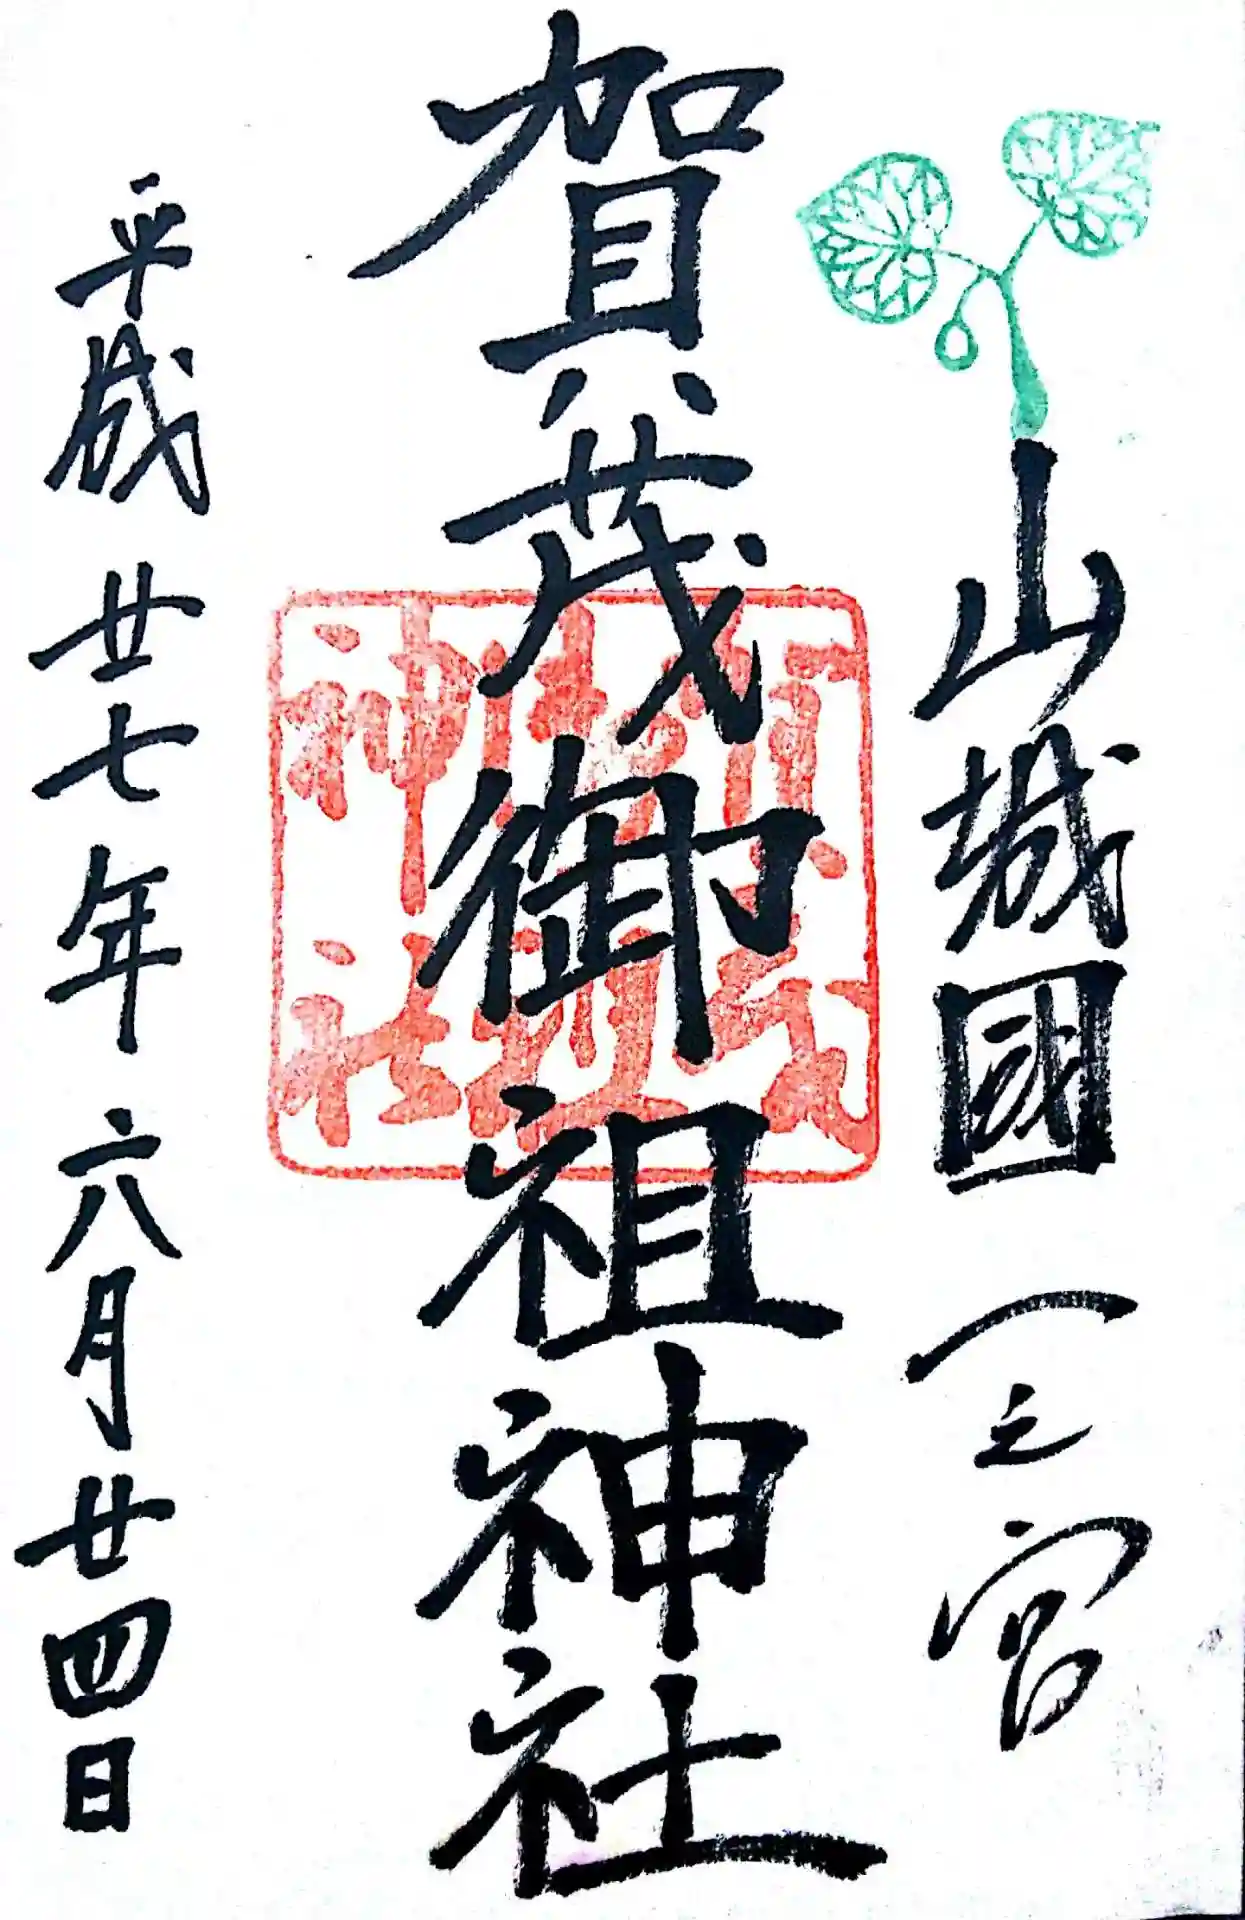 山城國一之宮
賀茂御祖神社
平成廿七年六月廿四日